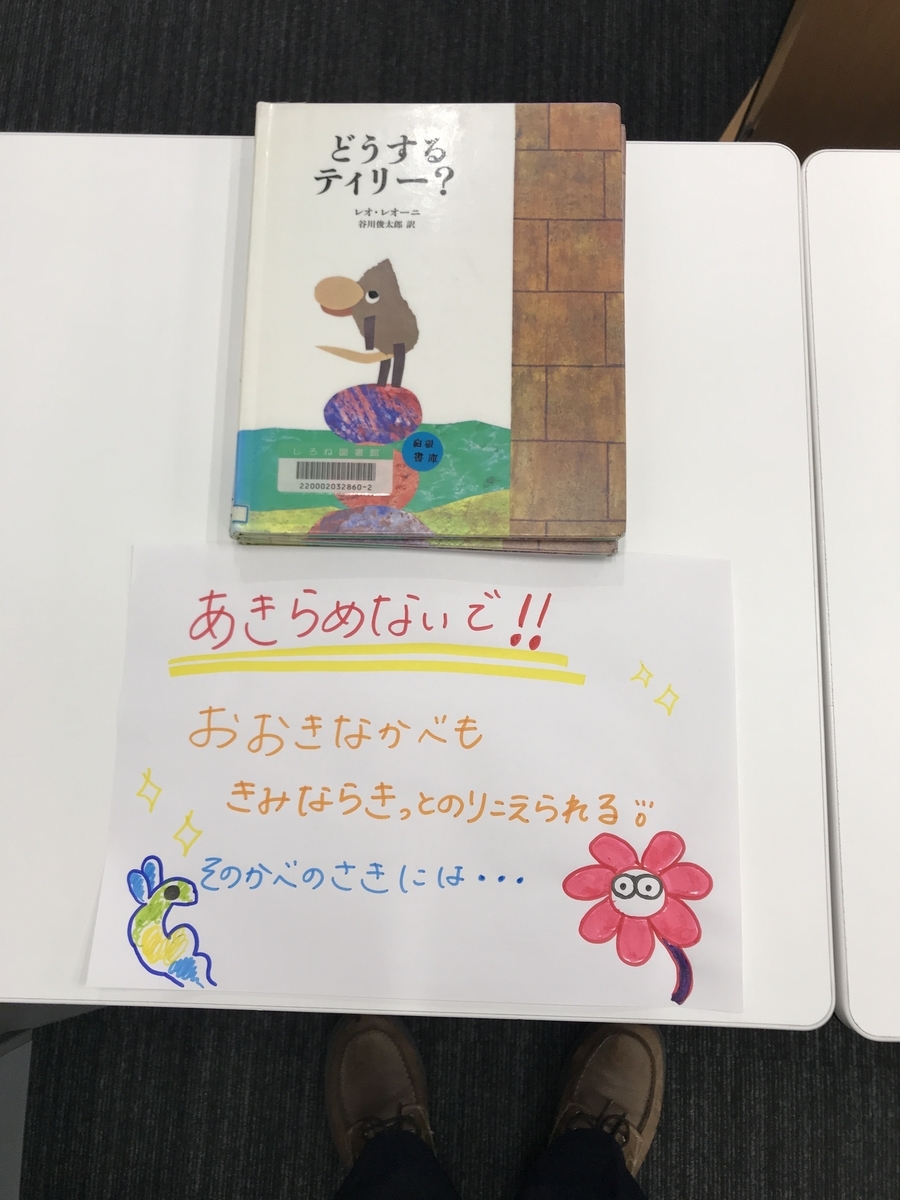 どうする
ティリー?
レオ・レオーニ
谷川俊太郎 訳
しろね図書館
220002032860-2
白根
書庫
あきらめないで!!
おおきなかべも
きみならきっとのりこえられる
そのかべのさきには・・・